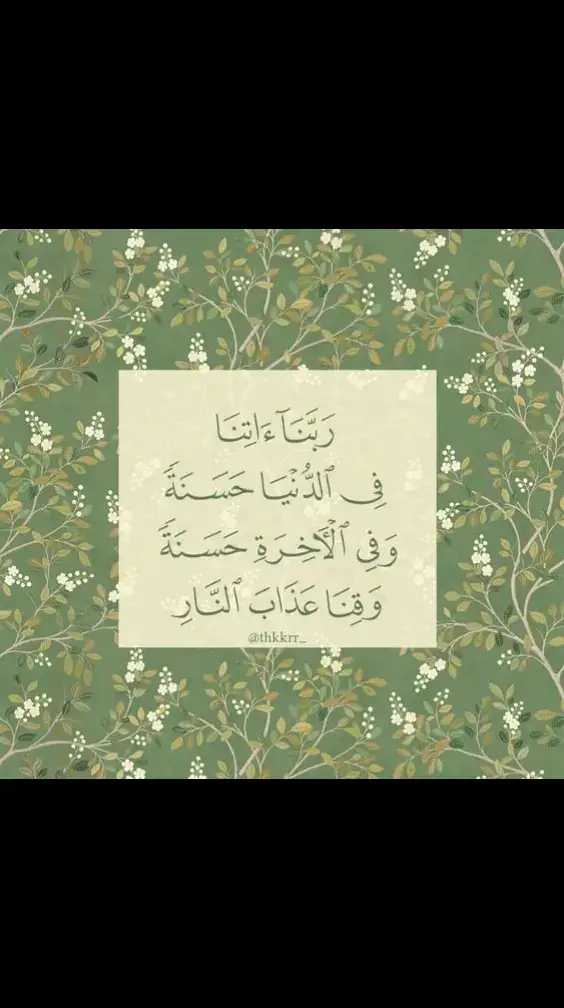 رَبَّنَآ ءَاتِنَا
فِى ٱلدُّنْيَا حَسَنَةً
وَفِى ٱلْأَخِرَةِ حَسَنَةً
وَقِنَا عَذَابَ ٱلنَّارِ
@thkkrr_